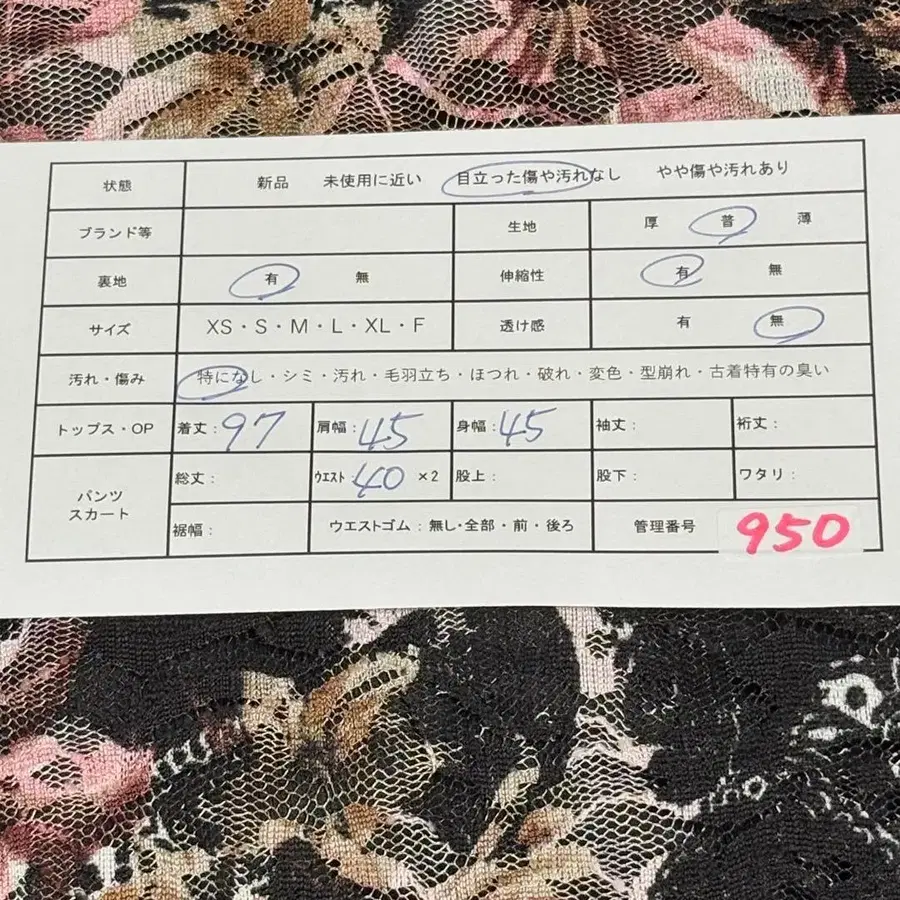 状態 新品 未使用に近い 目立った傷や汚れなし やや傷や汚れあり
ブランド等 生地 厚 普 薄
裏地 有 無 伸縮性 有 無
サイズ XS・S・M・L・XL・F 透け感 有 無
汚れ・傷み 特になし・シミ・汚れ・毛羽立ち・ほつれ・破れ・変色・型崩れ・古着特有の臭い
トップス・OP 着丈：97 肩幅：45 身幅：45 袖丈： 裄丈：
パンツ
スカート
総丈： ウエスト：40 ×2 股上： 股下： ワタリ：
裾幅： ウエストゴム：無し・全部・前・後ろ 管理番号 950